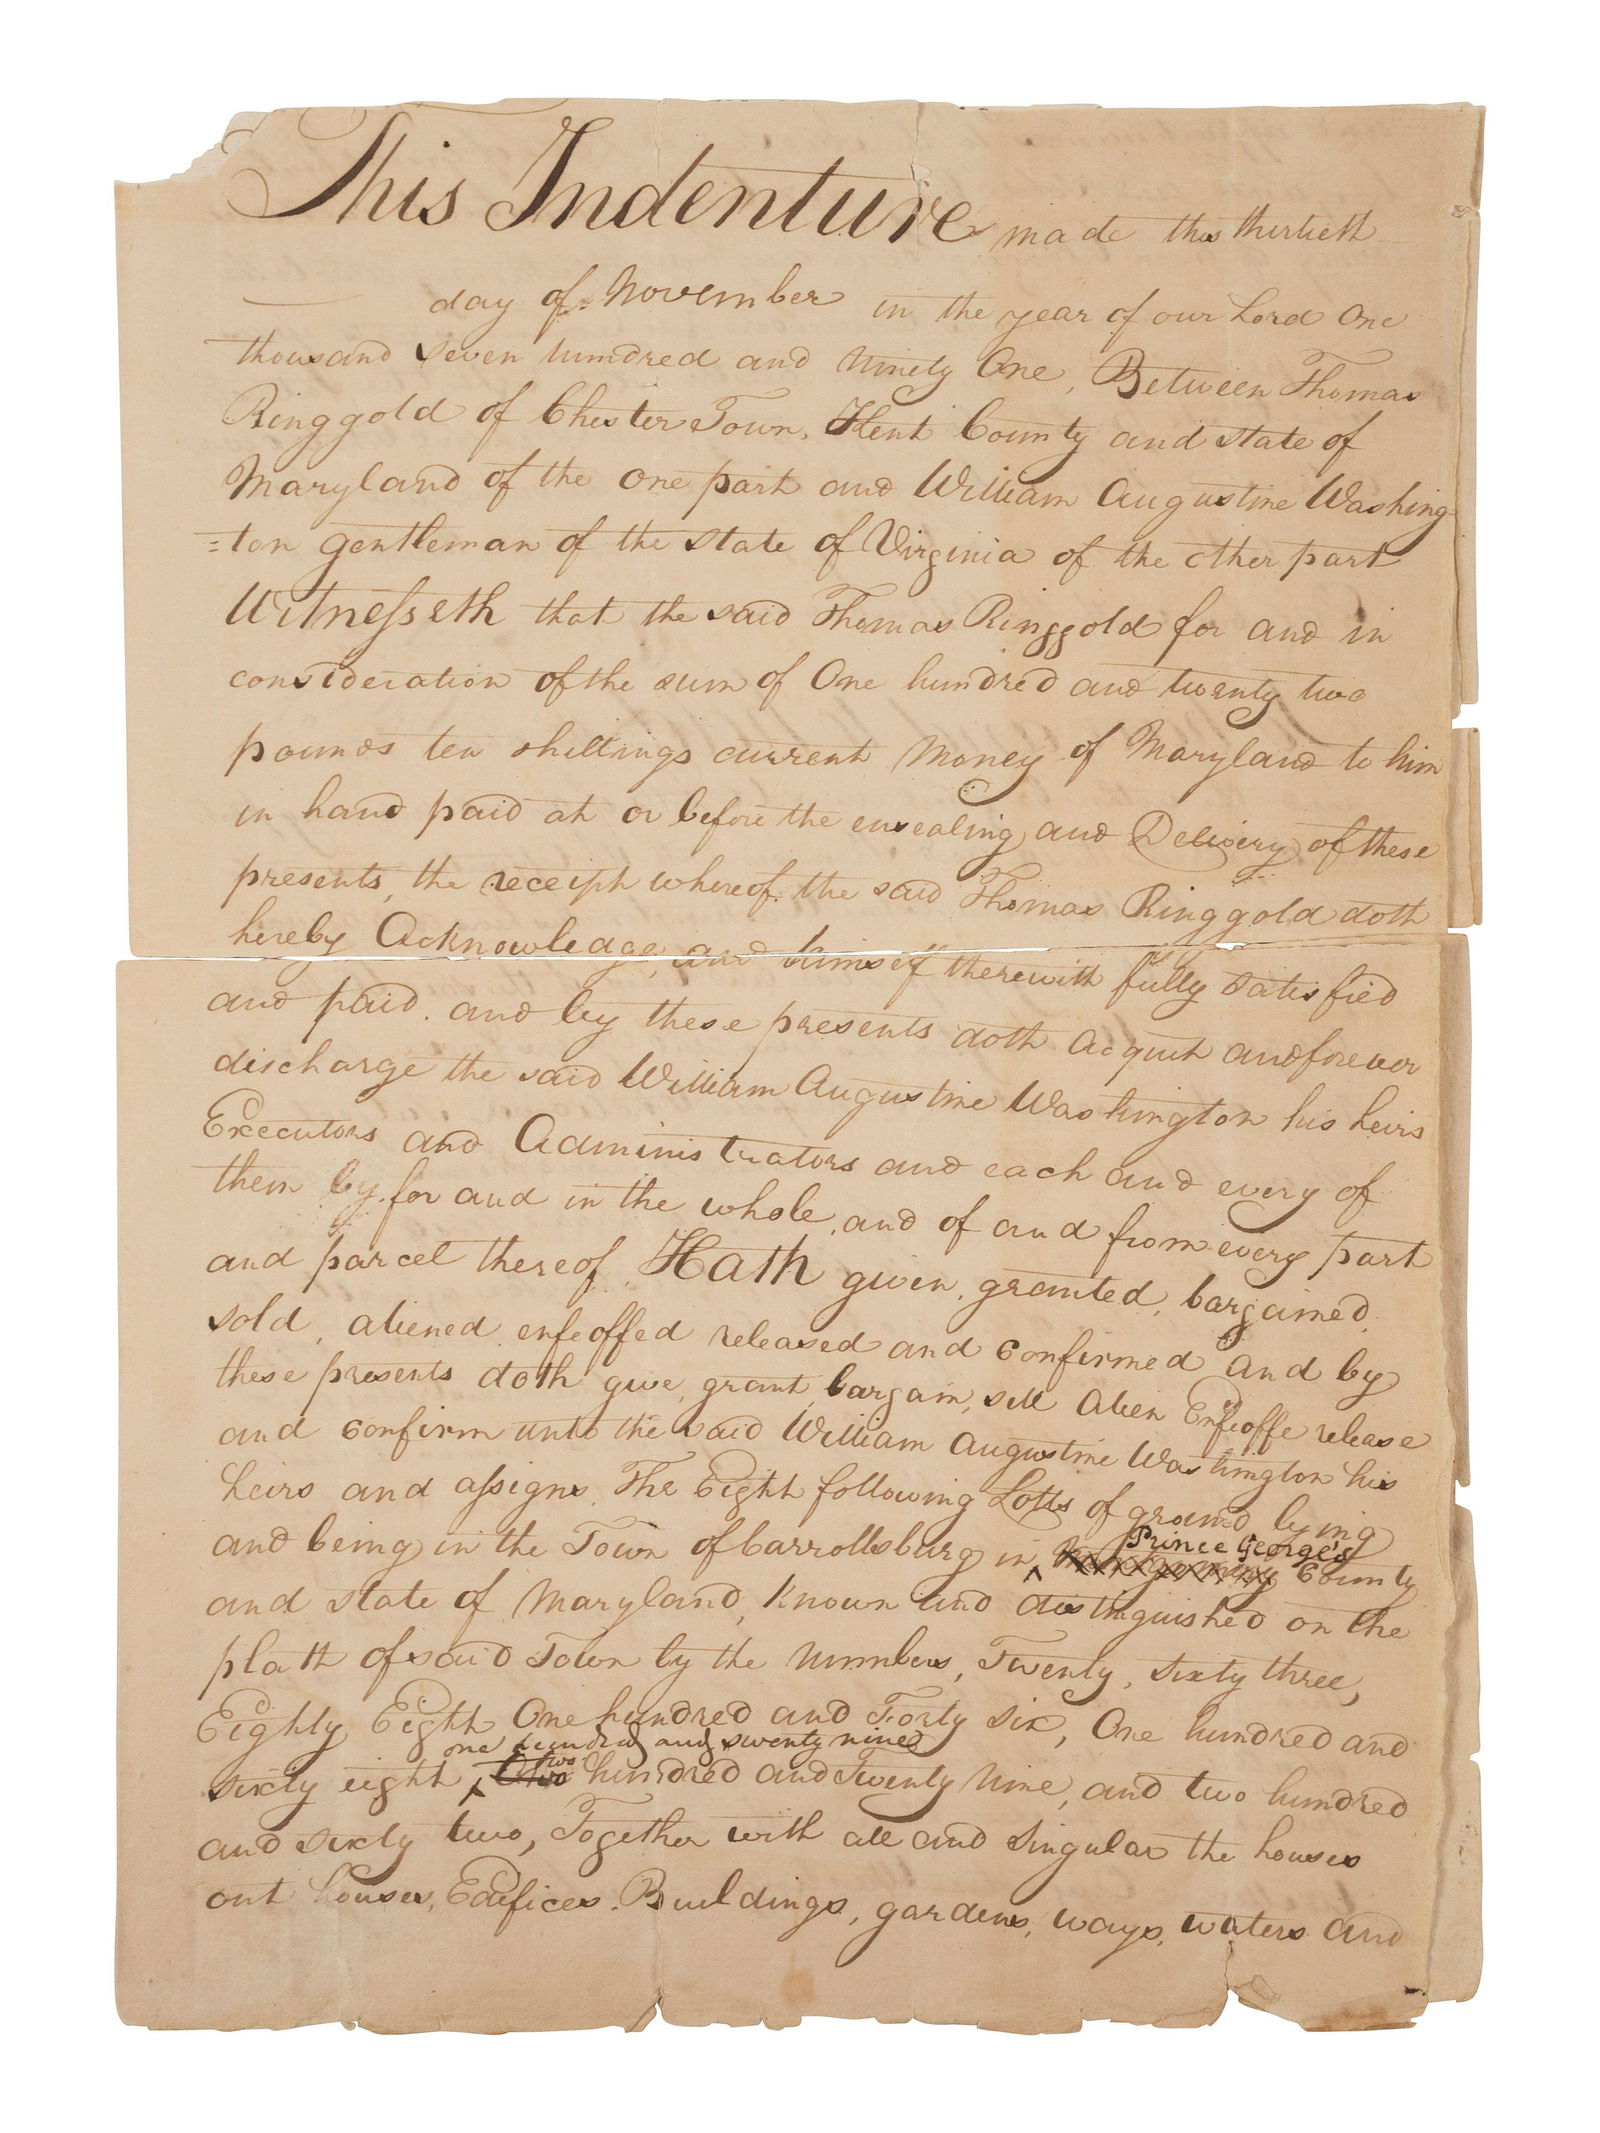 This Indenture made this thirtieth
day of November in the year of our Lord One
thousand seven hundred and Ninety One, Between Thomas
Ringgold of Chester Town, Kent County and state of
Maryland of the one part and William Augustine Washing=
=ton gentleman of the state of Virginia of the other part
Witnesseth that the said Thomas Ringgold for and in
consideration of the sum of One hundred and twenty two
pounds ten shillings current Money of Maryland to him
in hand paid at or before the ensealing and Delivery of these
presents, the receipt whereof the said Thomas Ringgold doth
hereby Acknowledge, and himself therewith fully satisfied
and paid. and by these presents doth acquit and forever
discharge the said William Augustine Washington his heirs
Executors and Administrators and each and every of
them by, for and in the whole, and of and from every part
and parcel thereof. Hath given, granted, bargained,
sold, aliened enfeoffed released and confirmed and by
these presents doth give, grant, bargain, sell alien Enfeoffe release
and confirm unto the said William Augustine Washington his
heirs and assigns, The Eight following Lotts of ground lying
Prince George's
and being in the Town of Carrollsburg in County
and state of Maryland, known and distinguished on the
platt of said Town by the Numbers, Twenty, sixty three,
Eighty Eight One hundred and Forty six, One hundred and
one hundred and twenty nine
two
sixty eight, two hundred and Twenty Nine, and two hundred
and sixty two, Together with all and singular the houses
out houses, Edifices. Buildings, gardens, ways, waters and